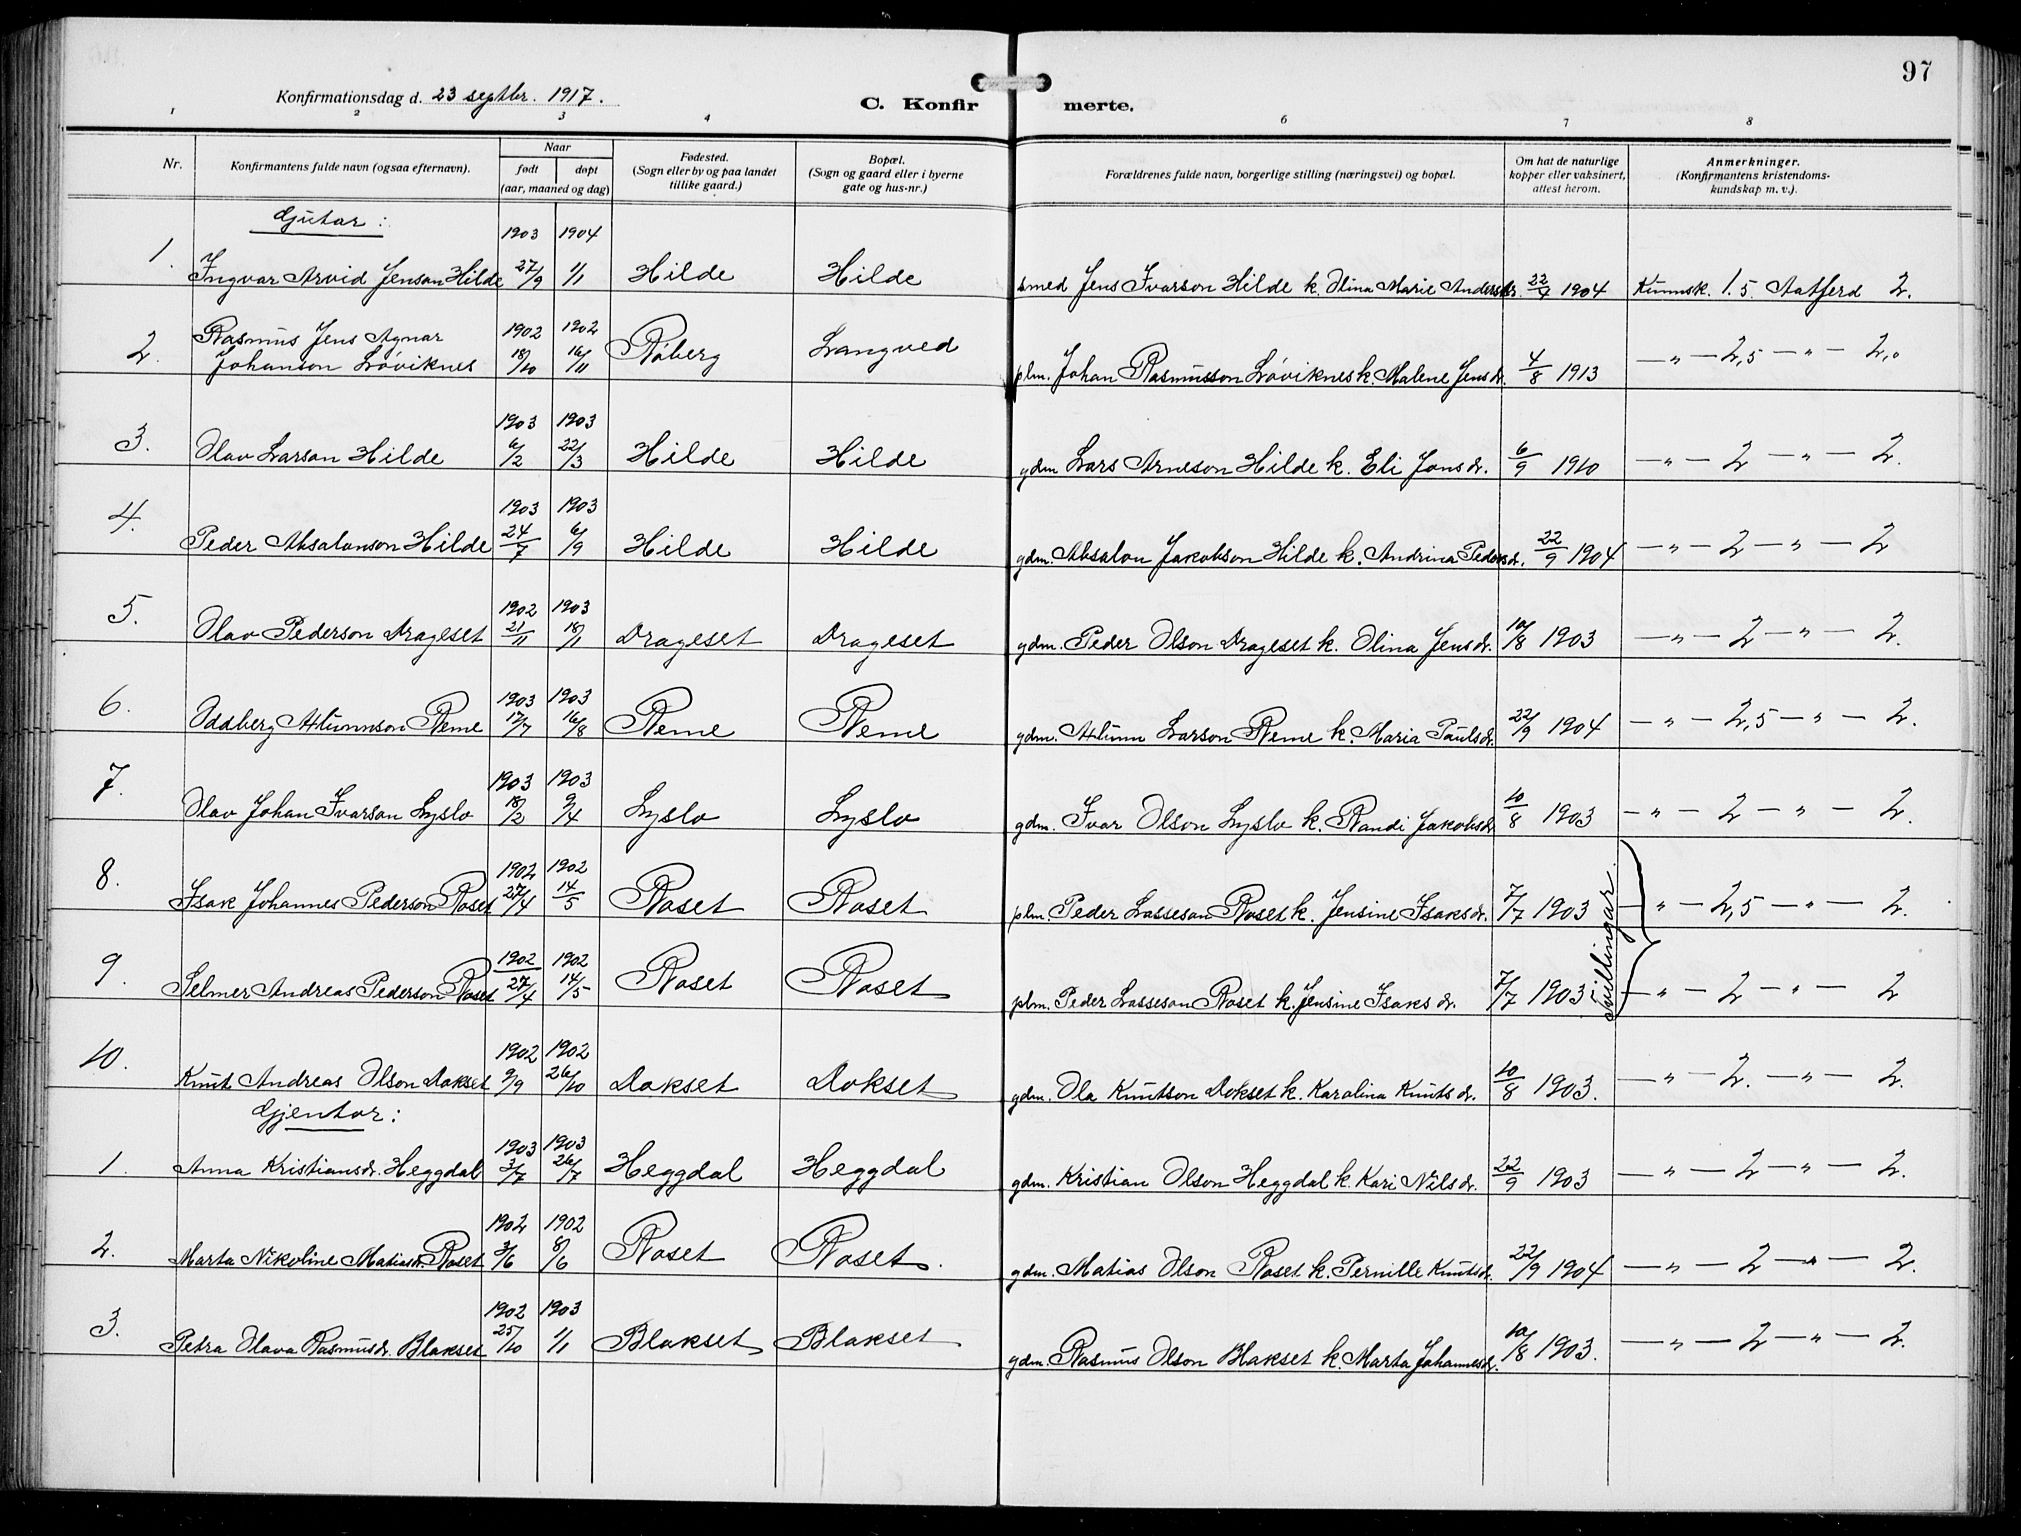 97
Konfirmationsdag d. 23 septbr. 1917.
C. Konfirmerte.
1 2 3 4 6 7 8
Nr.
Konfirmantens fulde navn (ogsaa efternavn).
Naar
født døpt
(aar, maaned og dag)
Fødested.
(Sogn eller by og paa landet
tillike gaard.)
Bopæl.
(Sogn og gaard eller i byerne
gate og hus-nr.)
Forældrenes fulde navn, borgerlige stilling (næringsvei) og bopæl.
Om hat de naturlige
kopper eller vaksinert,
attest herom.
Anmerkninger.
(Konfirmantens kristendoms-
kundskap m. v.).
Gutar:
1903 1904
1. Ingvar Arvid Jenson Hilde 27/9 1/1 Hilde Hilde smed Jens Ivarson Hilde k. Olina Marie Andersdr. 22/4 1904 Kunnsk. 1.5 Aatferd 2.
Rasmus Jens Agnar 1902 1902
2. Johanson Løviknes 18/10 16/11 Røberg Langved plm. Johan Rasmusson Løviknes k. Malene Jensdr. 4/8 1913 — " — 2,5 — " — 2,0
1903 1903
3. Olav Larson Hilde 6/2 22/3 Hilde Hilde gdm Lars Arneson Hilde k. Eli Jonsdr. 6/9 1910 — " — 2 — " — 2.
1903 1903
4. Peder Absalonson Hilde 24/7 6/9 Hilde Hilde gdm. Absalon Jakobson Hilde k. Andrina Pedersdr. 22/9 1904 — " — 2 — " — 2
1902 1903
5. Olav Pederson Drageset 21/11 18/1 Drageset Drageset gdm. Peder Olson Drageset k. Olina Jensdr. 10/8 1903 — " — 2 — " — 2.
1903 1903
6. Oddberg Atlunnson Reme 17/7 16/8 Reme Reme gdm. Atlunn Larson Reme k. Maria Paulsdr. 22/9 1904 — " — 2,5 — " — 2.
1903 1903
7. Olav Johan Ivarson Lyslo 18/2 9/4 Lyslo Lyslo gdm. Ivar Olson Lyslo k. Randi Jakobsdr. 10/8 1903 — " — 2 — " — 2.
1902 1902
8. Isak Johannes Pederson Roset 27/4 14/5 Roset Roset plm. Peder Lasseson Roset k. Jensine Isaksdr. 7/7 1903 — " — 2,5 — " — 2.
Tvillingar
1902 1902
9. Selmer Andreas Pederson Roset 27/4 14/5 Roset Roset plm. Peder Lasseson Roset k. Jensine Isaksdr. 7/7 1903 — " — 2 — " — 2
1902 1902
10. Knut Andreas Olson Dokset 9/9 26/10 Dokset Dokset gdm. Ola Knutson Dokset k. Karolina Knutsdr. 10/8 1903. — " — 2. — " — 2.
Gjentor:
1903 1903
1. Anna Kristiansdr. Heggdal 3/7 26/7 Heggdal Heggdal gdm. Kristian Olson Heggdal k. Kari Nilsdr. 22/9 1903 — " — 2 — " — 2.
1902 1902
2. Marta Nikoline Matiasdr. Roset 3/6 8/6 Roset Roset. gdm. Matias Olson Roset k. Pernille Knutsdr. 22/9 1904 — " — 2 — " — 2.
1902 1903
3. Petra Olava Rasmusdr. Blakset 25/10 1/1 Blakset Blakset gdm. Rasmus Olson Blakset k. Marta Johannesdr. 10/8 1903. — " — 2 — " — 2.